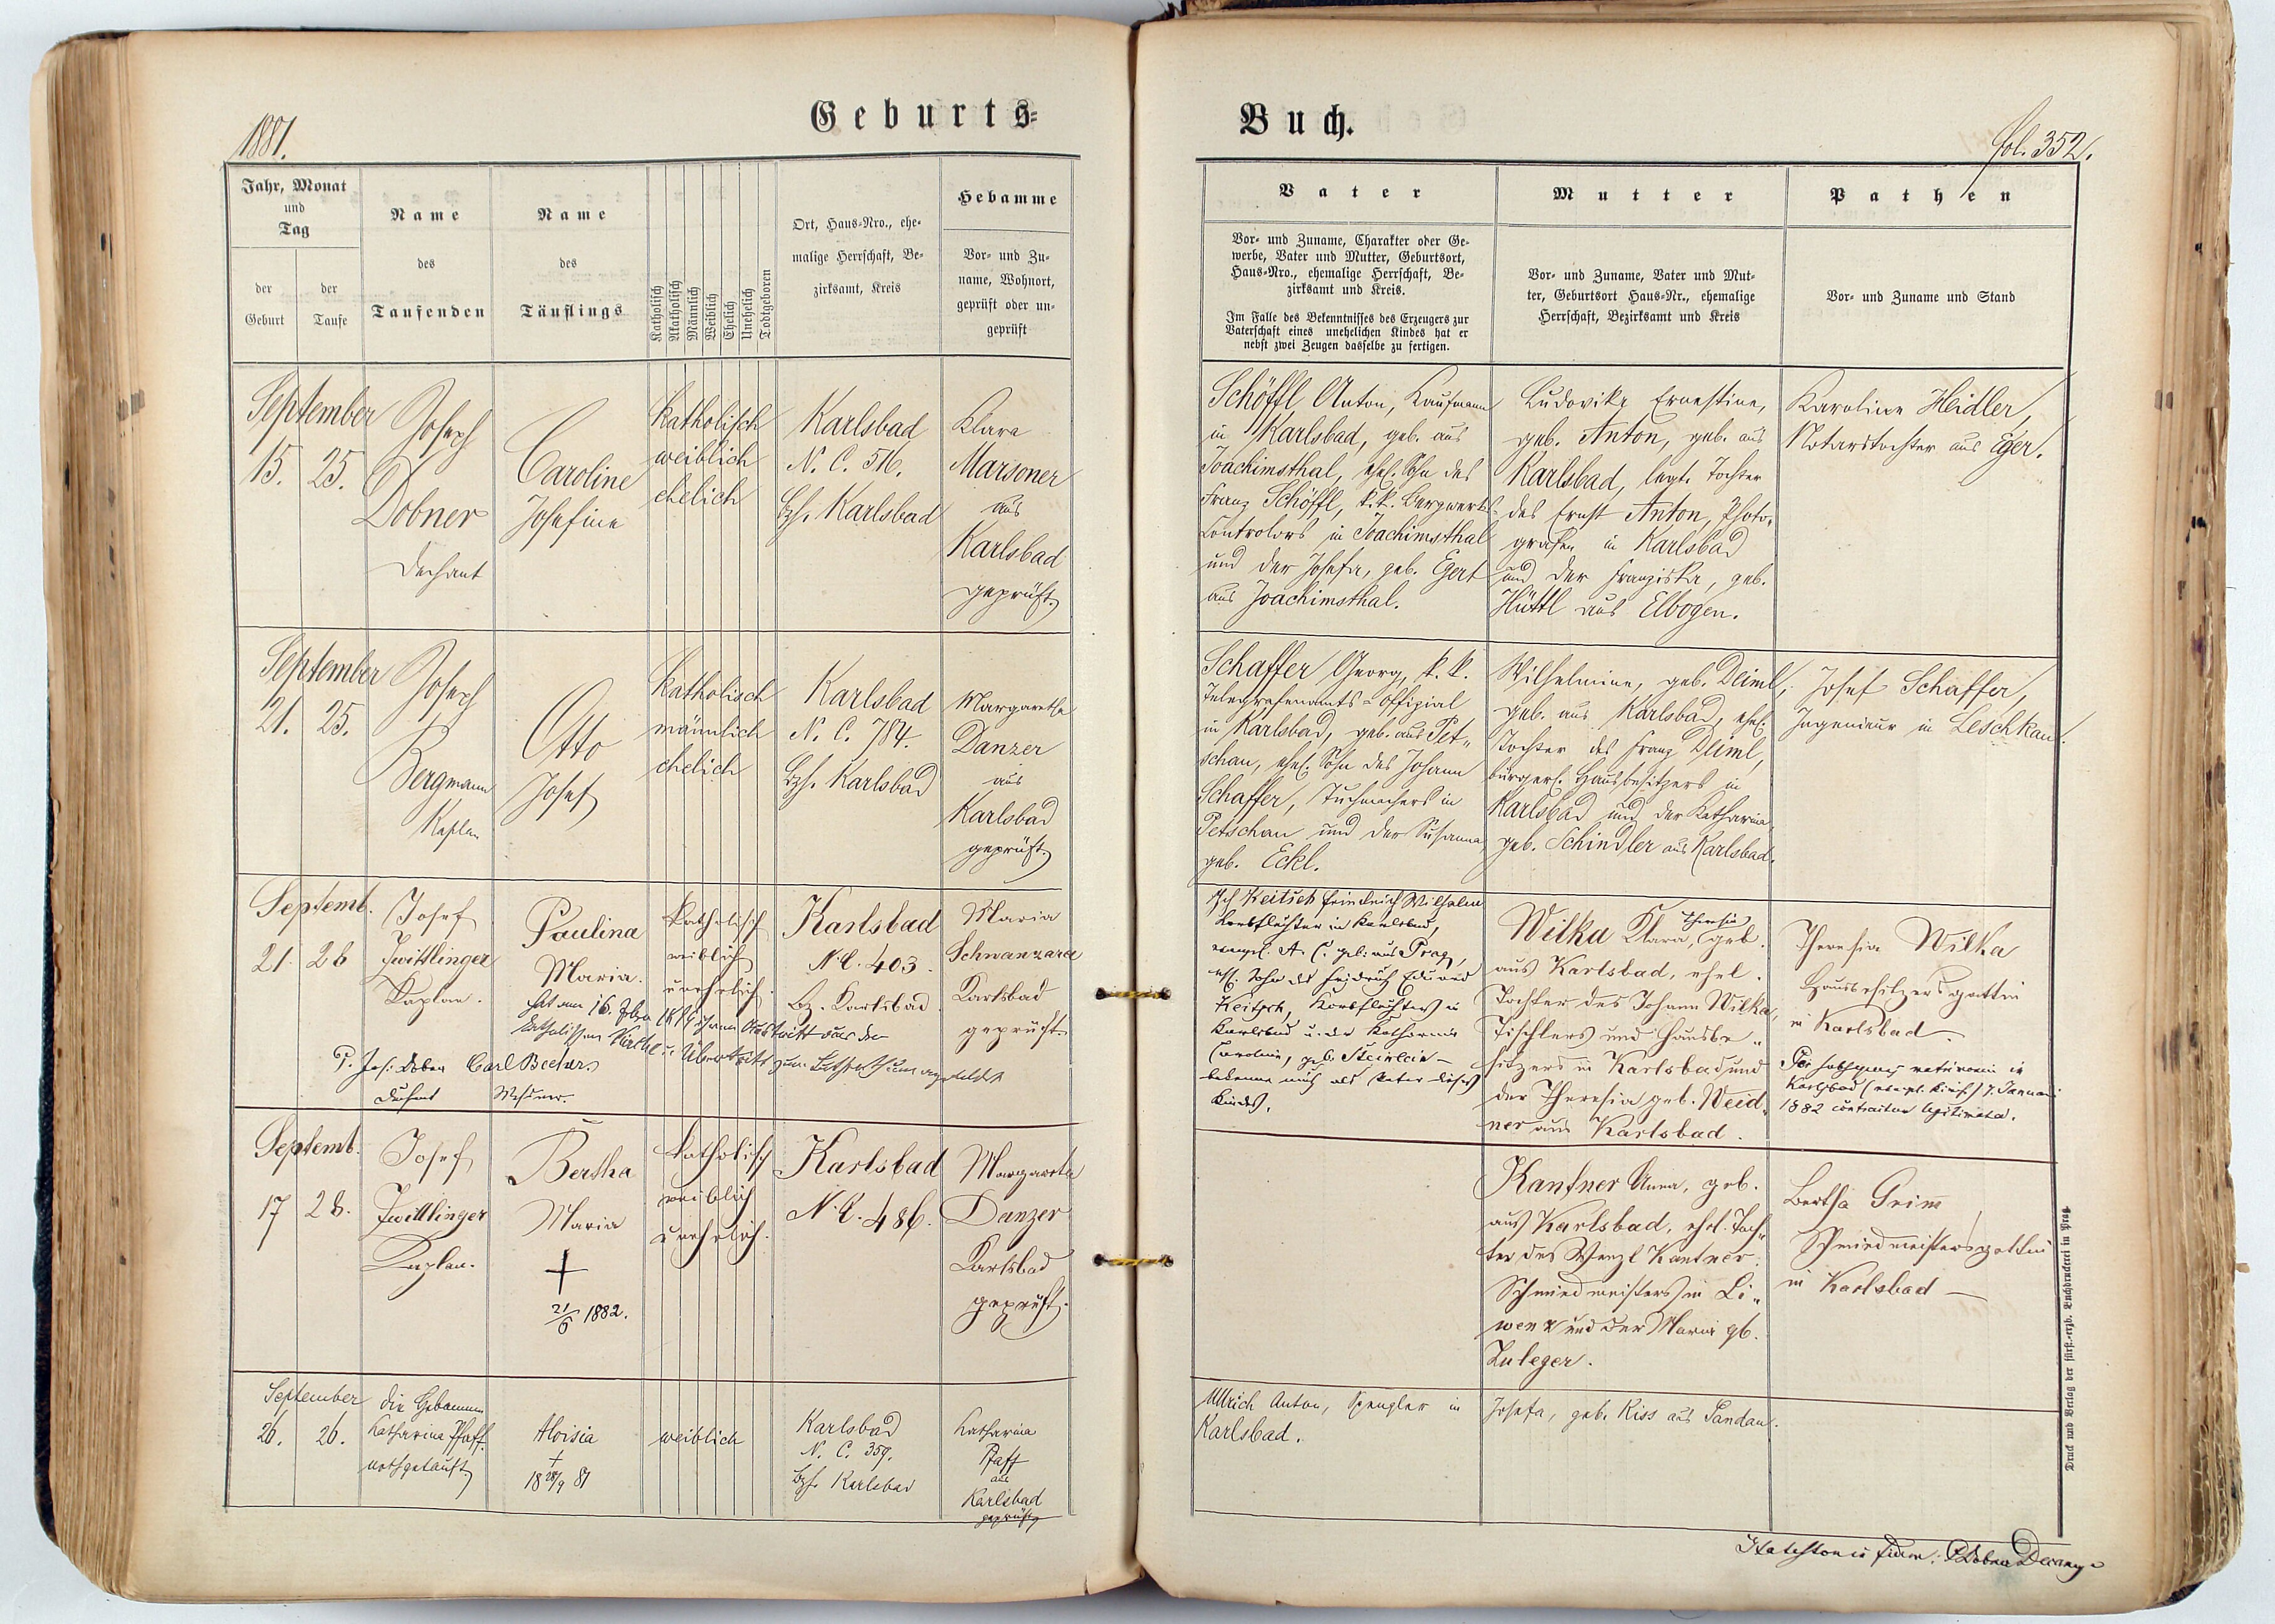 1881.
Geburts=
Jahr, Monat
und
Tag
der
Geburt
der
Taufe
Name
des
Taufenden
Name
des
Täuflings
Katholisch
Akatholisch
Männlich
Weiblich
Ehelich
Unehelich
Todtgeboren
Ort, Haus=Nro., ehe=
malige Herrschaft, Be=
zirksamt, Kreis
Hebamme
Vor= und Zu=
name, Wohnort,
geprüft oder un=
geprüft
September
15. 25.
Joseph
Dobner
Dechant
Caroline
Josefine
katholisch
weiblich
ehelich
Karlsbad
N. C. 516.
Bzh. Karlsbad
Klara
Marsoner
aus
Karlsbad
geprüft
September
21. 25.
Joseph
Bergmann
Kaplan
Otto
Josef
katholisch
männlich
ehelich
Karlsbad
N. C. 784.
Bzh. Karlsbad
Margarethe
Danzer
aus
Karlsbad
geprüft
Septemb.
21. 26
Josef
Zwittlinger
Kaplan.
Paulina
Maria.
katholisch
weiblich
unehelich.
Karlsbad
N.C. 403.
bz. Karlsbad.
Maria
Schwanzara
Karlsbad
geprüft
hat am 16. 1899 ihren Austritt aus der
katholischen Kirche u. Übertritt zum Lutherthum angemeldet
P. Jos. Dobner
Dechant
Carl Becher
Septemb.
17 28.
Josef
Zwittlinger
Kaplan.
Bertha
Maria
+
21/6 1882.
katholisch
weiblich
unehelich.
Karlsbad
N.C. 486.
Margareta
Danzer
Karlsbad
geprüft.
September
26. 26.
die Hebamme
Katharina Pfaff
nothgetauft
Aloisia
+
18 28/9 81
weiblich
Karlsbad
N. C. 359.
Bzh. Karlsbad
Katharina
Pfaff
aus
Karlsbad
geprüft
Buch.
fol. 352.
Vater
Vor= und Zuname, Charakter oder Ge=
werbe, Vater und Mutter, Geburtsort,
Haus=Nro., ehemalige Herrschaft, Be=
zirksamt und Kreis.
Im Falle des Bekenntnisses des Erzeugers zur
Vaterschaft eines unehelichen Kindes hat er
nebst zwei Zeugen dasselbe zu fertigen.
Mutter
Vor= und Zuname, Vater und Mut=
ter, Geburtsort Haus=Nr., ehemalige
Herrschaft, Bezirksamt und Kreis
Pathen
Vor= und Zuname und Stand
Schöffl Anton, Kaufmann
in Karlsbad, geb. aus
Joachimsthal, ehel. Sohn des
Franz Schöffl, k.k. Bergwerks=
Controlors in Joachimsthal
und der Josefa, geb. Egert
aus Joachimsthal.
Ludovika Ernestine,
geb. Anton, geb. aus
Karlsbad, legt. Tochter
des Ernst Anton, Photo=
grafen in Karlsbad
und der Franziska, geb.
Hüttl aus Elbogen.
Karoline Heidler,
Notarstochter aus Eger.
Schaffer Georg, k. k.
Telegrafenamts=Offizial
in Karlsbad, geb. aus Pet=
schau, ehel. Sohn des Johann
Schaffer, Tuchmachers in
Petschau und der Susanna
geb. Eckl.
Wilhelmine, geb. Deiml,
geb. aus Karlsbad, ehel.
Tochter des Franz Deiml,
bürgerl. Hausbesitzers in
Karlsbad und der Katharina
geb. Schindler aus Karlsbad.
Josef Schaffer,
Ingenieur in Leschkau.
Ich Keitsch Friedrich Wilhelm
Korbflechter in Karlsbad,
evangel. A. C. geb. aus Prag,
ehl. Sohn des Friedrich Eduard
Keitsch, Korbflechters in
Karlsbad u. der Katharina
Caroline, geb. Steinlein –
bekenne mich als Vater dieses
Kindes.
Wilka Klara, Theresia geb.
aus Karlsbad, ehel.
Tochter des Johann Wilka,
Tischlers und Hausbe=
sitzers in Karlsbad und
der Theresia geb. Weid=
ner aus Karlsbad.
Theresia Wilka
Hausbesitzersgattin
in Karlsbad.
Per subsequens matrimonium in
Karlsbad (evangl. Kirche) 7. Januari
1882 contractum legitimata.
Kantner Anna, geb.
aus Karlsbad, ehel. Toch=
ter des Wenzl Kantner
Schmiedmeisters in Li=
wenz und der Maria gb.
Zuleger.
Bertha Grimm
Schmiedmeistersgattin
in Karlsbad –
Ullrich Anton, Spengler in
Karlsbad.
Josefa, geb. Riss aus Sandau.
Druck und Verlag der fürst.=erzb. Buchdruckerei in Prag.